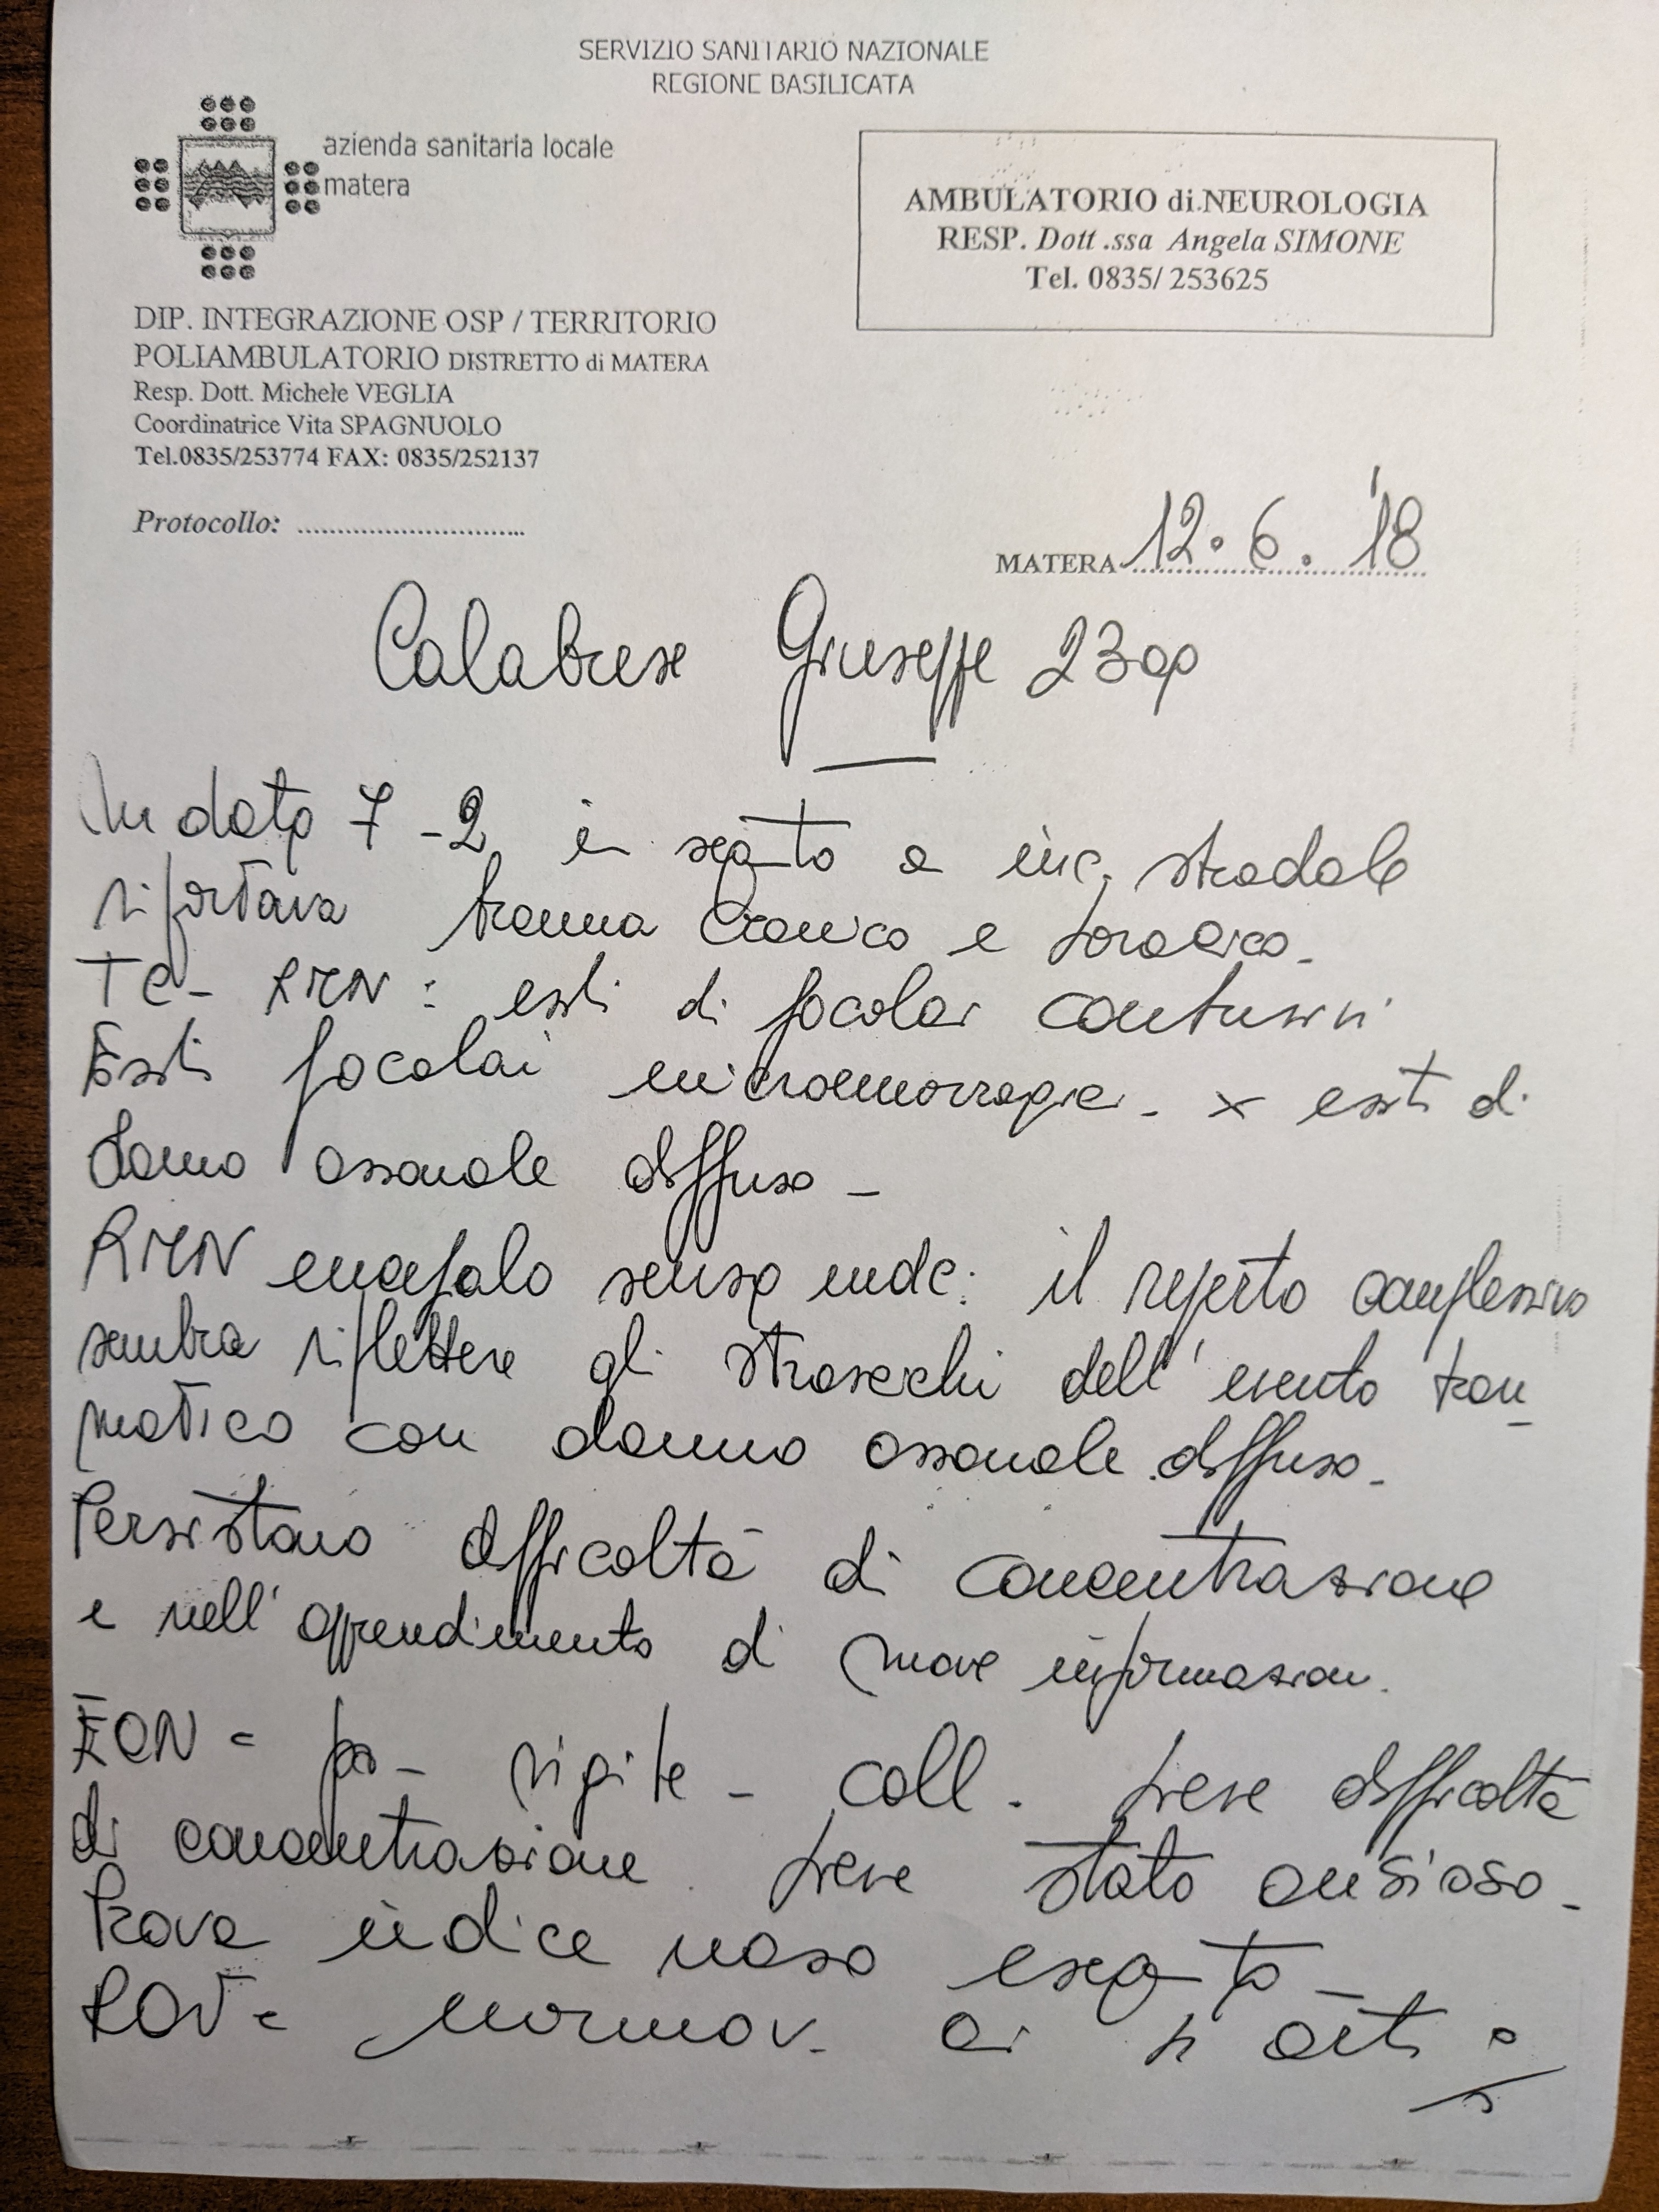 SERVIZIO SANITARIO NAZIONALE
REGIONE BASILICATA
azienda sanitaria locale
matera
AMBULATORIO di NEUROLOGIA
RESP. Dott .ssa Angela SIMONE
Tel. 0835/ 253625
DIP. INTEGRAZIONE OSP / TERRITORIO
POLIAMBULATORIO DISTRETTO di MATERA
Resp. Dott. Michele VEGLIA
Coordinatrice Vita SPAGNUOLO
Tel.0835/253774 FAX: 0835/252137
Protocollo: ..............................
MATERA 12.6.'18
Calabrese Giuseppe 23
In data 7-2 in seg-to a inc. stradale
riportava trauma cranico e toracico.
TC - RMN: esiti di focolai contusivi
Esiti focolai microemorragici - x esiti di
danno assonale diffuso -
RMN encefalo senza mdc: il reperto complessivo
sembra riflettere gli strascichi dell'evento trau_
matico con danno assonale diffuso.
Persistono difficoltà di concentrazione
e nell'apprendimento di nuove informazioni.
EON = vigile - coll. lieve difficoltà
di concentrazione. lieve stato ansioso -
Prova indice naso eseg-ta -
ROT = normov. ai 4 arti